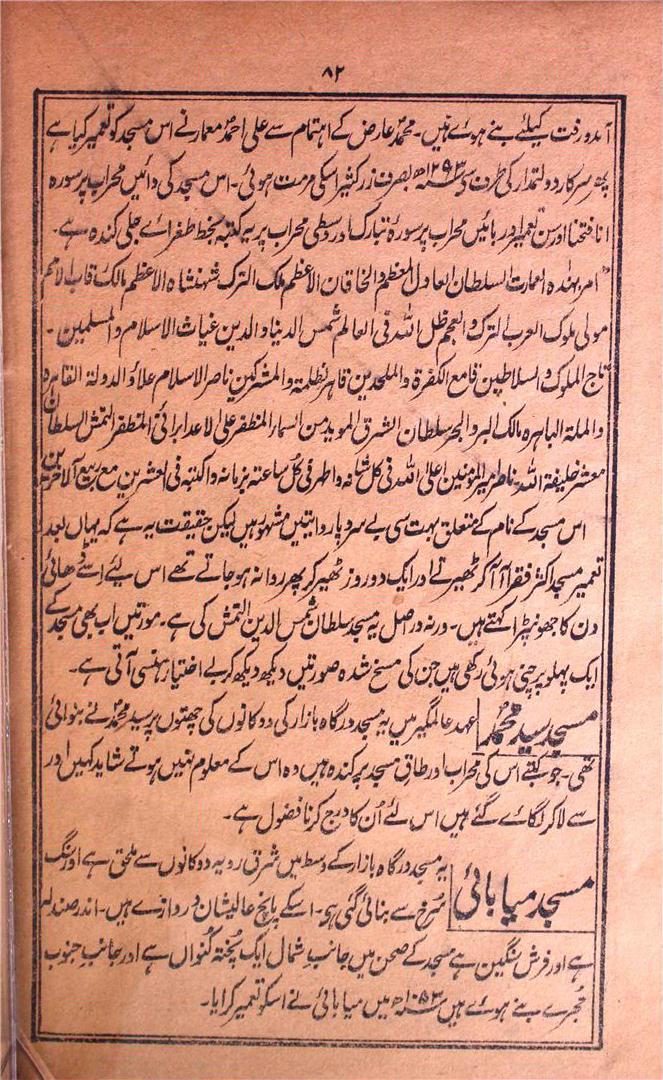 ۸۲
آمدورفت کیلئے بنے ہوئے ہیں۔ محمد عارض کے اہتمام سے علی احمد معمار نے اس مسجد کو تعمیر کیا ہے
پھر سرکار دولتمدار کی طرف سے ۱۲۹۳ھ بصرف زر کثیر اسکی مرمت ہوئی۔ اس مسجد کی دائیں محراب پر سورہ
انا فتحنا اور سن تعمیر اور بائیں محراب پر سورۂ تبارک اور وسطی محراب پر یہ کتبہ بخط طغرائے جلی کندہ ہے۔
"امر بھٰذہ العمارت السلطان العادل المعظم والخاقان الاعظم ملک الترک شہنشاہ الاعظم مالک رقاب الامم
مولی ملوک العرب الترک و العجم ظل اللہ فی العالم شمس الدنیا والدین غیاث الاسلام والمسلمین۔
تاج الملوک والسلاطین قامع الکفرۃ والملحدین قاہر الظلمۃ والمشرکین ناصر الاسلام علاؤ الدولۃ القاہرہ
والملۃ الباہرہ مالک البر والبحر سلطان الشرق الموید من السماء المظفر علی الاعدا ابرائی المظفر التمش السلطان
معشر خلیفۃ اللہ ناظر امیر المومنین اعلی اللہ فی کل شانہ و اظہر فی کل ساعتہ بزمانہ واکتبہ فی العشرین مع ربیع الآخرین
اس مسجد کے نام کے متعلق بہت سی بے سروپا روایتیں مشہور ہیں لیکن حقیقت یہ ہے کہ یہاں بعد
تعمیر مسجد اکثر فقرا آ آکر ٹھیرتے اور ایک دو روز ٹھیر کر پھر روانہ ہو جاتے تھے اس لئے اسے ڈھائی
دن کا جھونپڑا کہتے ہیں۔ ورنہ در اصل یہ مسجد سلطان شمس الدین التمش کی ہے۔ مورتیں اب بھی مسجد کے
ایک پہلو پر چنی ہوئی رکھی ہیں جن کی مسخ شدہ صورتیں دیکھ دیکھ کر بے اختیار ہنسی آتی ہے۔
مسجد سید محمد عہد عالمگیر میں یہ مسجد درگاہ بازار کی دوکانوں کی چھتوں پر سید محمد نے بنوائی
تھی۔ جو کتبے اس کی محراب اور طاق مسجد پر کندہ ہیں وہ اس کے معلوم نہیں ہوتے شاید کہیں اور
سے لاکر لگائے گئے ہیں اس لئے اُن کا درج کرنا فضول ہے۔
مسجد میابائی یہ مسجد درگاہ بازار کے وسط میں شرق رویہ دوکانوں سے ملحق ہے اور سنگ
سُرخ سے بنائی گئی ہے۔ اسکے پانچ عالیشان دروازے ہیں۔ اندر صندلہ
ہے اور فرش سنگین ہے مسجد کے صحن میں جانب شمال ایک پختہ کنواں ہے اور جانب جنوب
حُجرے بنے ہوئے ہیں ۱۰۵۳ھ میں میابائی نے اسکو تعمیر کرایا۔